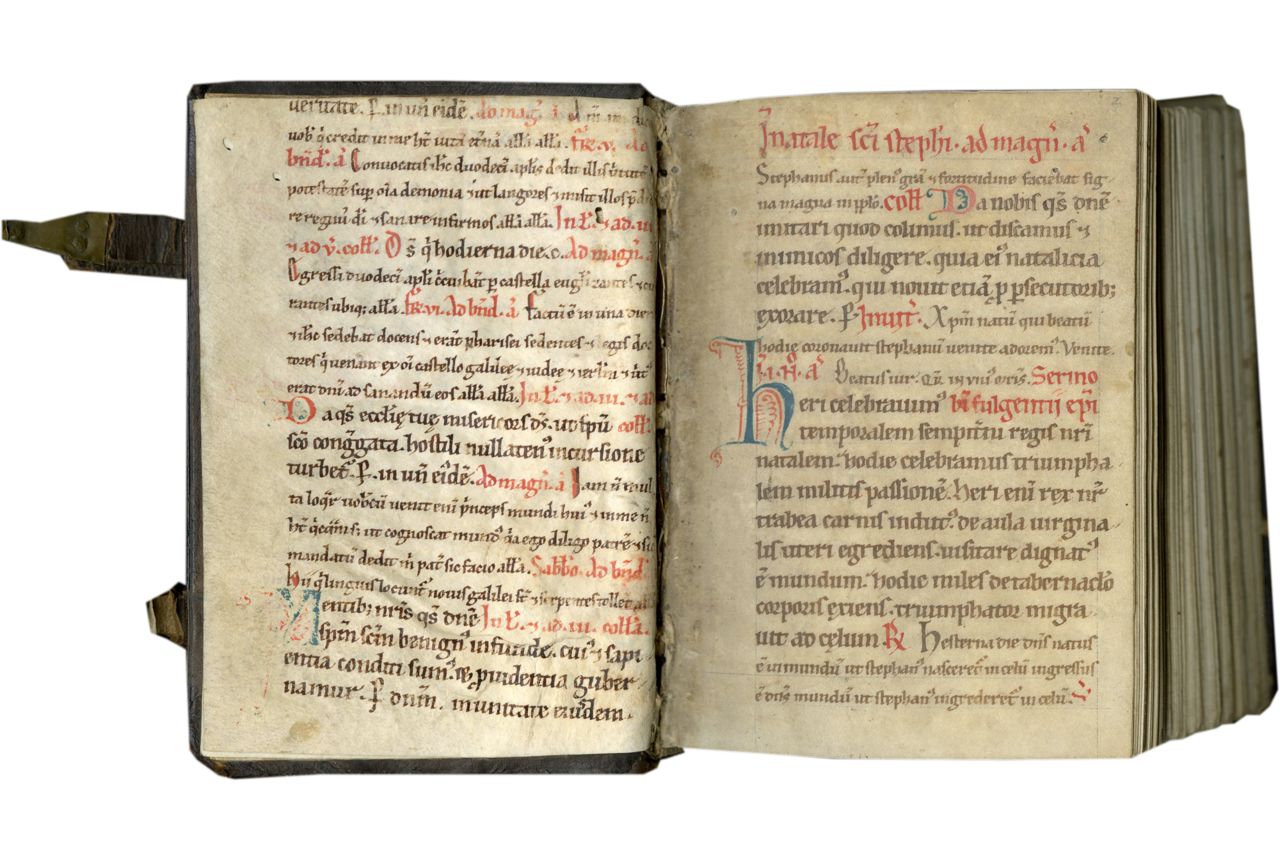 ueritate. ꝑ. in un̄ eidē. ad mag̅.
uob̅ q̇ credit in me h̅t uitā et̅nā all̅a all̅a. f̅r. v. Ad
bn̄d̅. a̅ Conuocatis ih̅c duodeci̅ aplis̅ dedit illis u̅tutē
potestatē sup̅ om̅ia demonia ⁊ ut langores ⁊ misit illos p̅d
re regnu̅ d̅i ⁊ sanare infirmos all̅a all̅a. In t̅. ⁊ ad. ui
⁊ ad v̅. coll̅. D s̅ q̇ hodierna die. Ad magn̅. a
Egressi duodeci̅ apl̅i c̅cuiba̅t ꝑ castella eug̅lizantes ⁊ cu
rantes ubiq; all̅a. f̅r. vi. Ad bn̄d. a̅ factū ē in una dier
⁊ ih̅c sedebat docens ⁊ erāt pharisei sedentes ⁊ legis doc
tores q̇ uenant̅ ex om̅i castello galilee ⁊ iudee ⁊ ierl̅m ⁊ u̅t
erat dn̅i ad sanandū eos all̅a all̅a. In t̅. ⁊ ad. iii. ⁊ ad
Da qs̅ eccl̅ie̜ tue̜ misericors d̅s. ut sp̅u coll̅.
sc̅o cong̅gata. hostili nullaten᾿ incursione
turbet᾿. ꝑ. in un̅ ei᾿dē. Ad magn̅. a̅ Iam n̅ mul
ta loqr̅ uobcū uenit eni̅ p̅nceps mundi hui᾿ ⁊ in me n̅
h̅t q̇cq̅m; ut cognoscat mund᾿ q̅a ego diligo patrē ⁊ sic
mandatū dedit m̅ pat̅ sic facio all̅a. Sabb̅o. Ad bn̄d̅.
hii q̇ linguis locunt᾿ nouis galilei st̅ ⁊ serpentes tollēt all̅a
Mentib; nr̅is qs̅ dn̅e In t̅. ⁊ ad. iii. coll̅a.
sp̅m sc̅m benign᾿ infunde. cui᾿ ⁊ sapi
entia conditi sum᾿. ⁊ p̅uidentia guber
namur. ꝑ dn̅m. in unitate eiusdem.
In natale sc̅i steph̅i. ad magn̅. a̅
Stephanus aut̅ plen᾿ gr̅a ⁊ fortitudine faciebat sig
na magna in ppl̅o. coll̅ Da nobis qs̅ dn̅e
imitari quod colimus. ut discamus ⁊
inimicos diligere. quia ei᾿ natalicia
celebram᾿. qui nouit etiā p̅ p̱secutorib;
exorare. ꝑ. Inuit̅. Xp̅m natū qui beatū
hodie coronauit stephanū uenite adorem᾿. Venite.
In. i. N̅. a̅ Beatus uir. Sermo
heri celebrauim᾿ bi̅ fulgentii ep̅i
temporalem sempit̅ni regis nr̅i
natalem. hodie celebramus triumpha
lem militis passionē. Heri eni̅ rex nr̅
trabea carnis indut᾿. de aula uirgina
lis uteri egrediens. uisitare dignat᾿
ē mundum. hodie miles de tabernaclo̅
corporis exiens. triumphator migra
uit ad ce̜lum ℟ Hesterna die dn̅s natus
ē in mundū ut stephan᾿ nasceret᾿ in celū ingressus
ē dn̅s mundū ut stephan᾿ ingrederet᾿ in celū. ℣